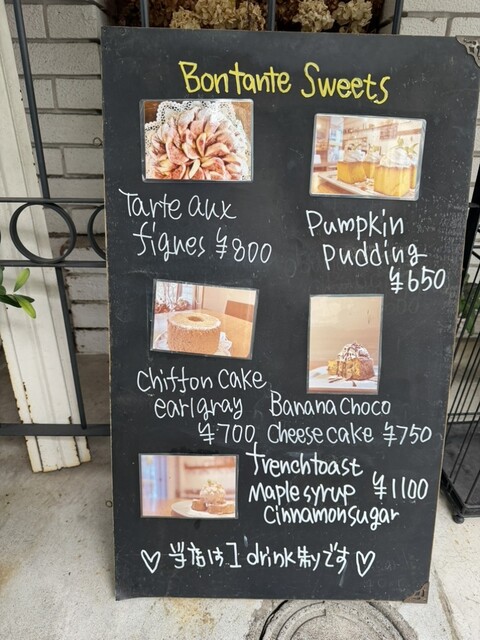 Bontante Sweets
Tarte aux
figues ¥800
Pumpkin
pudding
¥650
Chiffon cake
earlgray
¥700
Banana choco
Cheese cake ¥750
frenchtoast
Maple syrup ¥1100
Cinnamonsugar
♡ 当店は1drink制です ♡